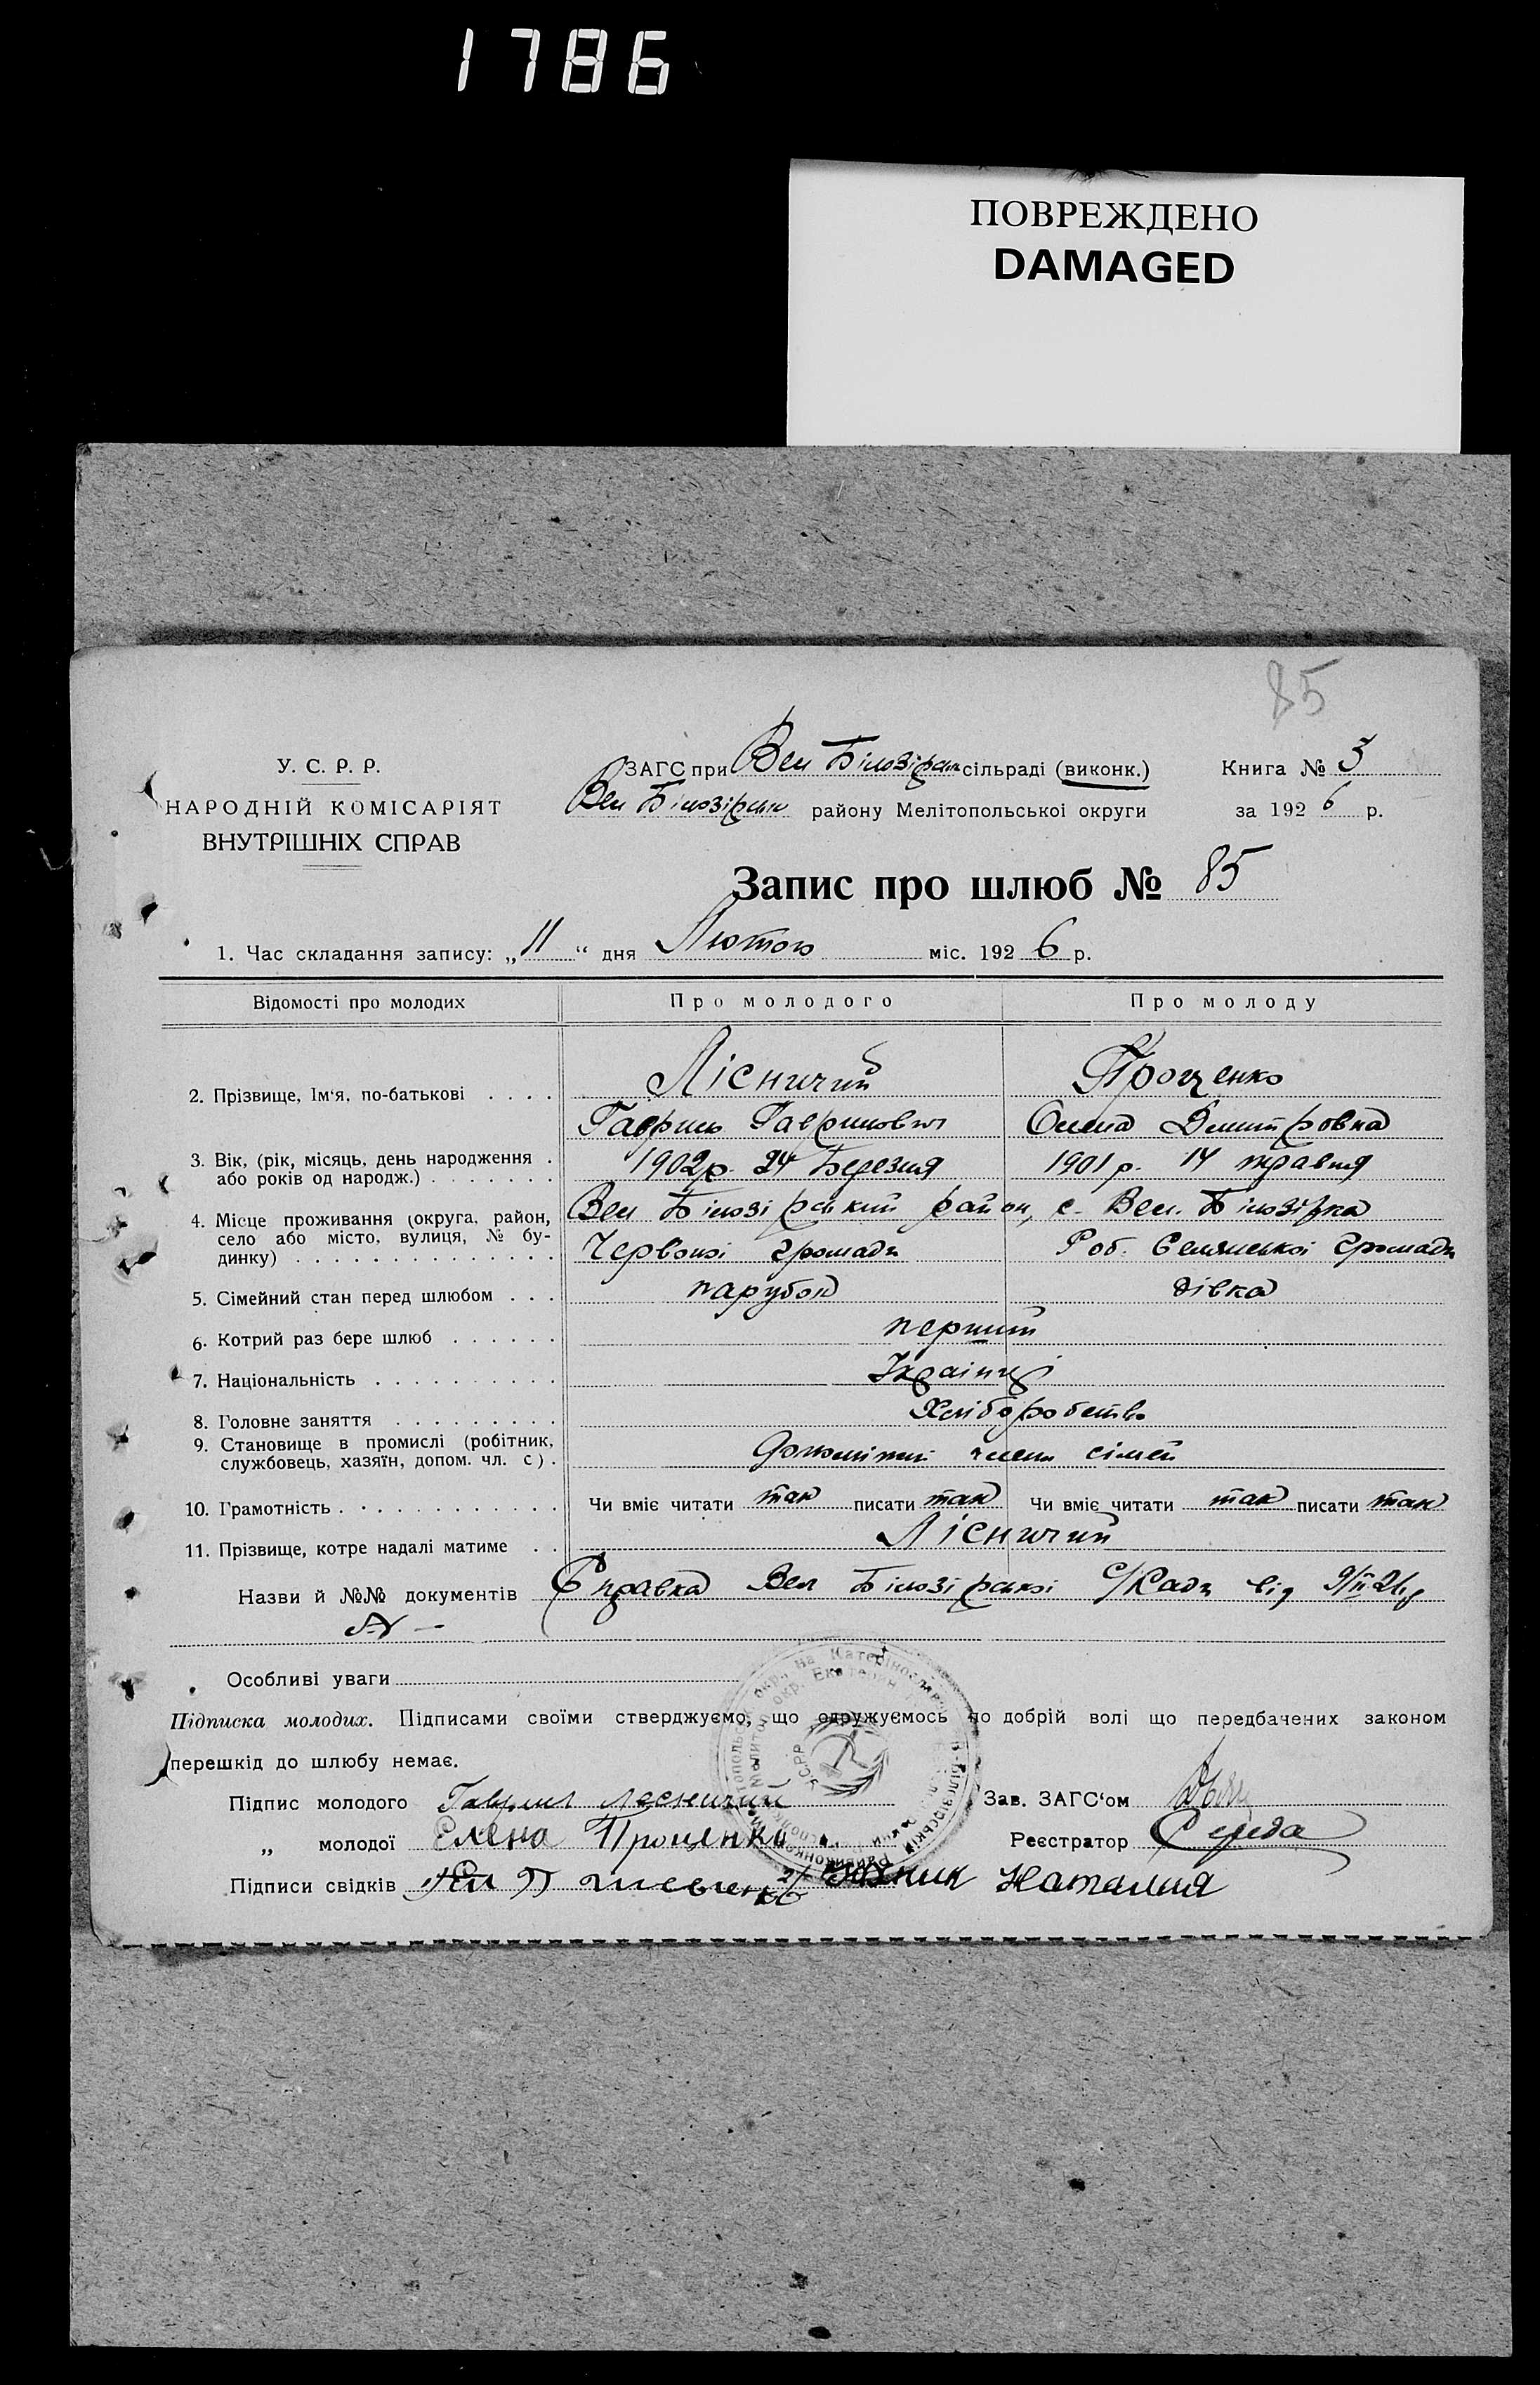 1786
ПОВРЕЖДЕНО
DAMAGED
85
У. С. Р. Р.
НАРОДНІЙ КОМІСАРІЯТ
ВНУТРІШНІХ СПРАВ
ЗАГС при Вел Білозірськ сільраді (виконк.)
Вел Білозірськ району Мелітопольської округи
Книга № 3
за 1926 р.
Запис про шлюб № 85
1. Час складання запису: „11“ дня Лютого міс. 1926 р.
Відомості про молодих Про молодого Про молоду
2. Прізвище, Ім‘я, по-батькові . . . . Лісничий Проценко
Гаврило Гаврилович Олена Дмитровна
3. Вік, (рік, місяць, день народження . або років од народж.) . . . . . . . 1902 р. 24 Березня 1901 р. 14 травня
4. Місце проживання (округа, район, село або місто, вулиця, № будинку) . . . . . . . . . . . . . Вел Білозірський район, с. Вел. Білозірка
Червоної громади Роб. Селянської громади
5. Сімейний стан перед шлюбом . . . парубок дівка
6. Котрий раз бере шлюб . . . . . . перший
7. Національність . . . . . . . . . . Українці
8. Головне заняття . . . . . . . . . Хліборобство
9. Становище в промислі (робітник, службовець, хазяїн, допом. чл. с) . член сімей
10. Грамотність . . . . . . . . . . . . Чи вміє читати так писати так Чи вміє читати так писати так
11. Прізвище, котре надалі матиме . . Лісничий
Назви й №№ документів Справка Вел Білозірської С/Ради від
Особливі уваги
Підписка молодих. Підписами своїми стверджуємо, що одружуємось по добрій волі що передбачених законом
перешкід до шлюбу немає.
Підпис молодого Гаврил Лесничий Зав. ЗАГС‘ом
„ молодої Елена Проценко Реєстратор Середа
Підписи свідків Наталия
УСРР